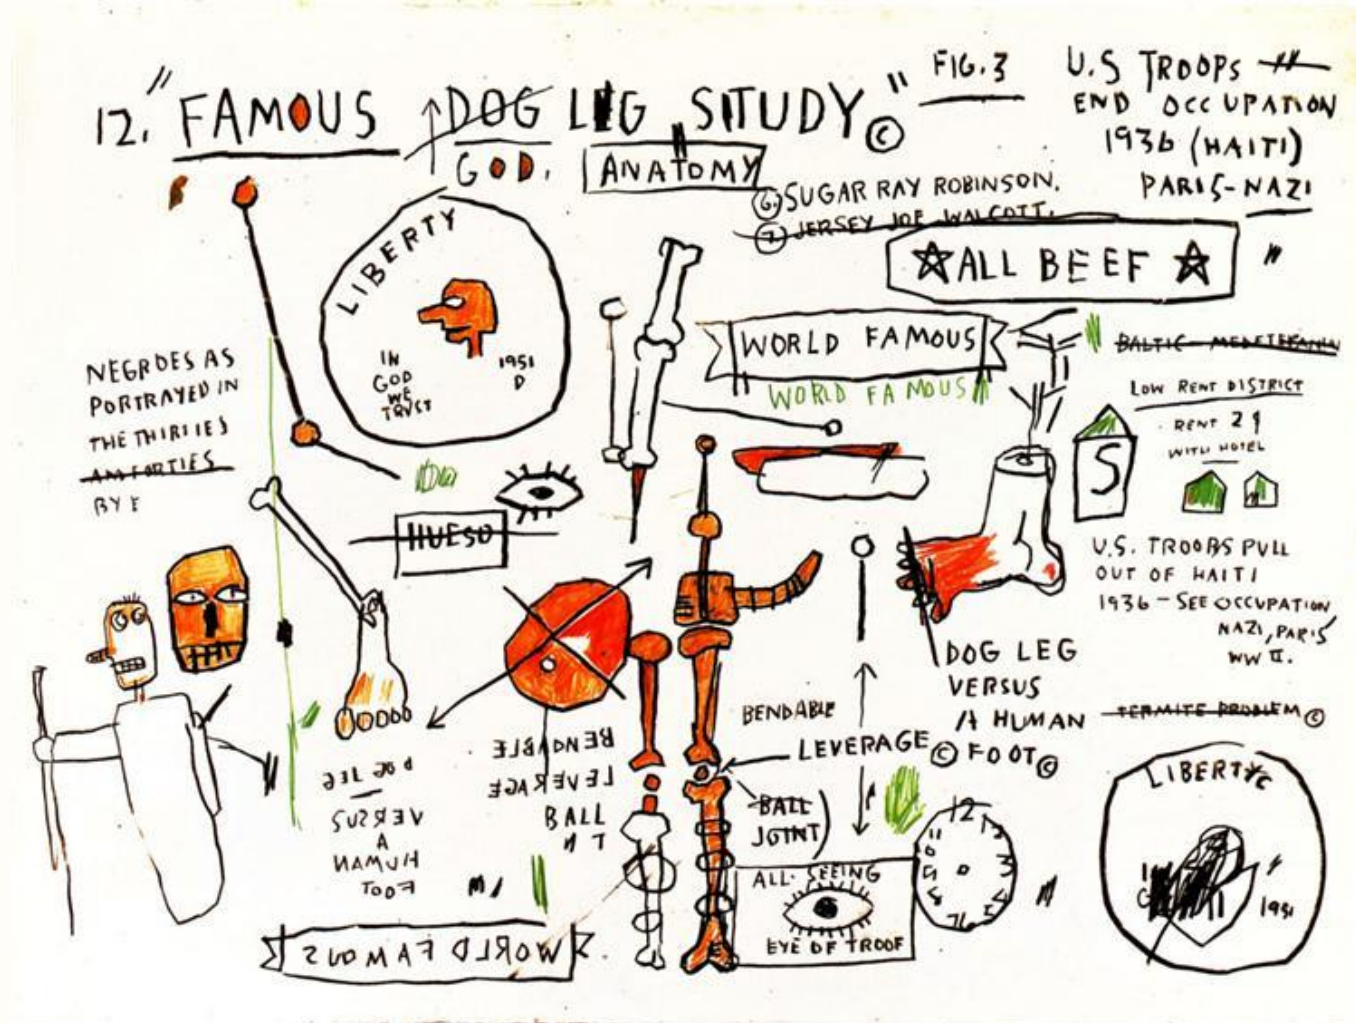 12. "FAMOUS DOG LEG STUDY" ©
GOD. ANATOMY
FIG. 3
U.S TROOPS
END OCCUPATION
1936 (HAITI)
PARIS-NAZI
"
6. SUGAR RAY ROBINSON.
7. JERSEY JOE WALCOTT.
ALL BEEF
LIBERTY
IN
GOD
WE
TRUST
1951
D
WORLD FAMOUS
WORLD FAMOUS
BALTIC
LOW RENT DISTRICT
RENT
WITH HOTEL
S
NEGROES AS
PORTRAYED IN
THE THIRTIES
FORTIES
HUESO
U.S. TROOPS PULL
OUT OF HAITI
1936 - SEE OCCUPATION,
NAZI, PARIS
WW II.
DOG LEG
VERSUS
A HUMAN
FOOT ©
TERMITE PROBLEM ©
BENDABLE
LEVERAGE ©
BALL
JOINT)
BENDABLE
LEVERAGE
BALL
DOG LEG
VERSUS
A
HUMAN
FOOT
ALL SEEING
EYE OF TROOF
12
WORLD FAMOUS
LIBERTY ©
1951